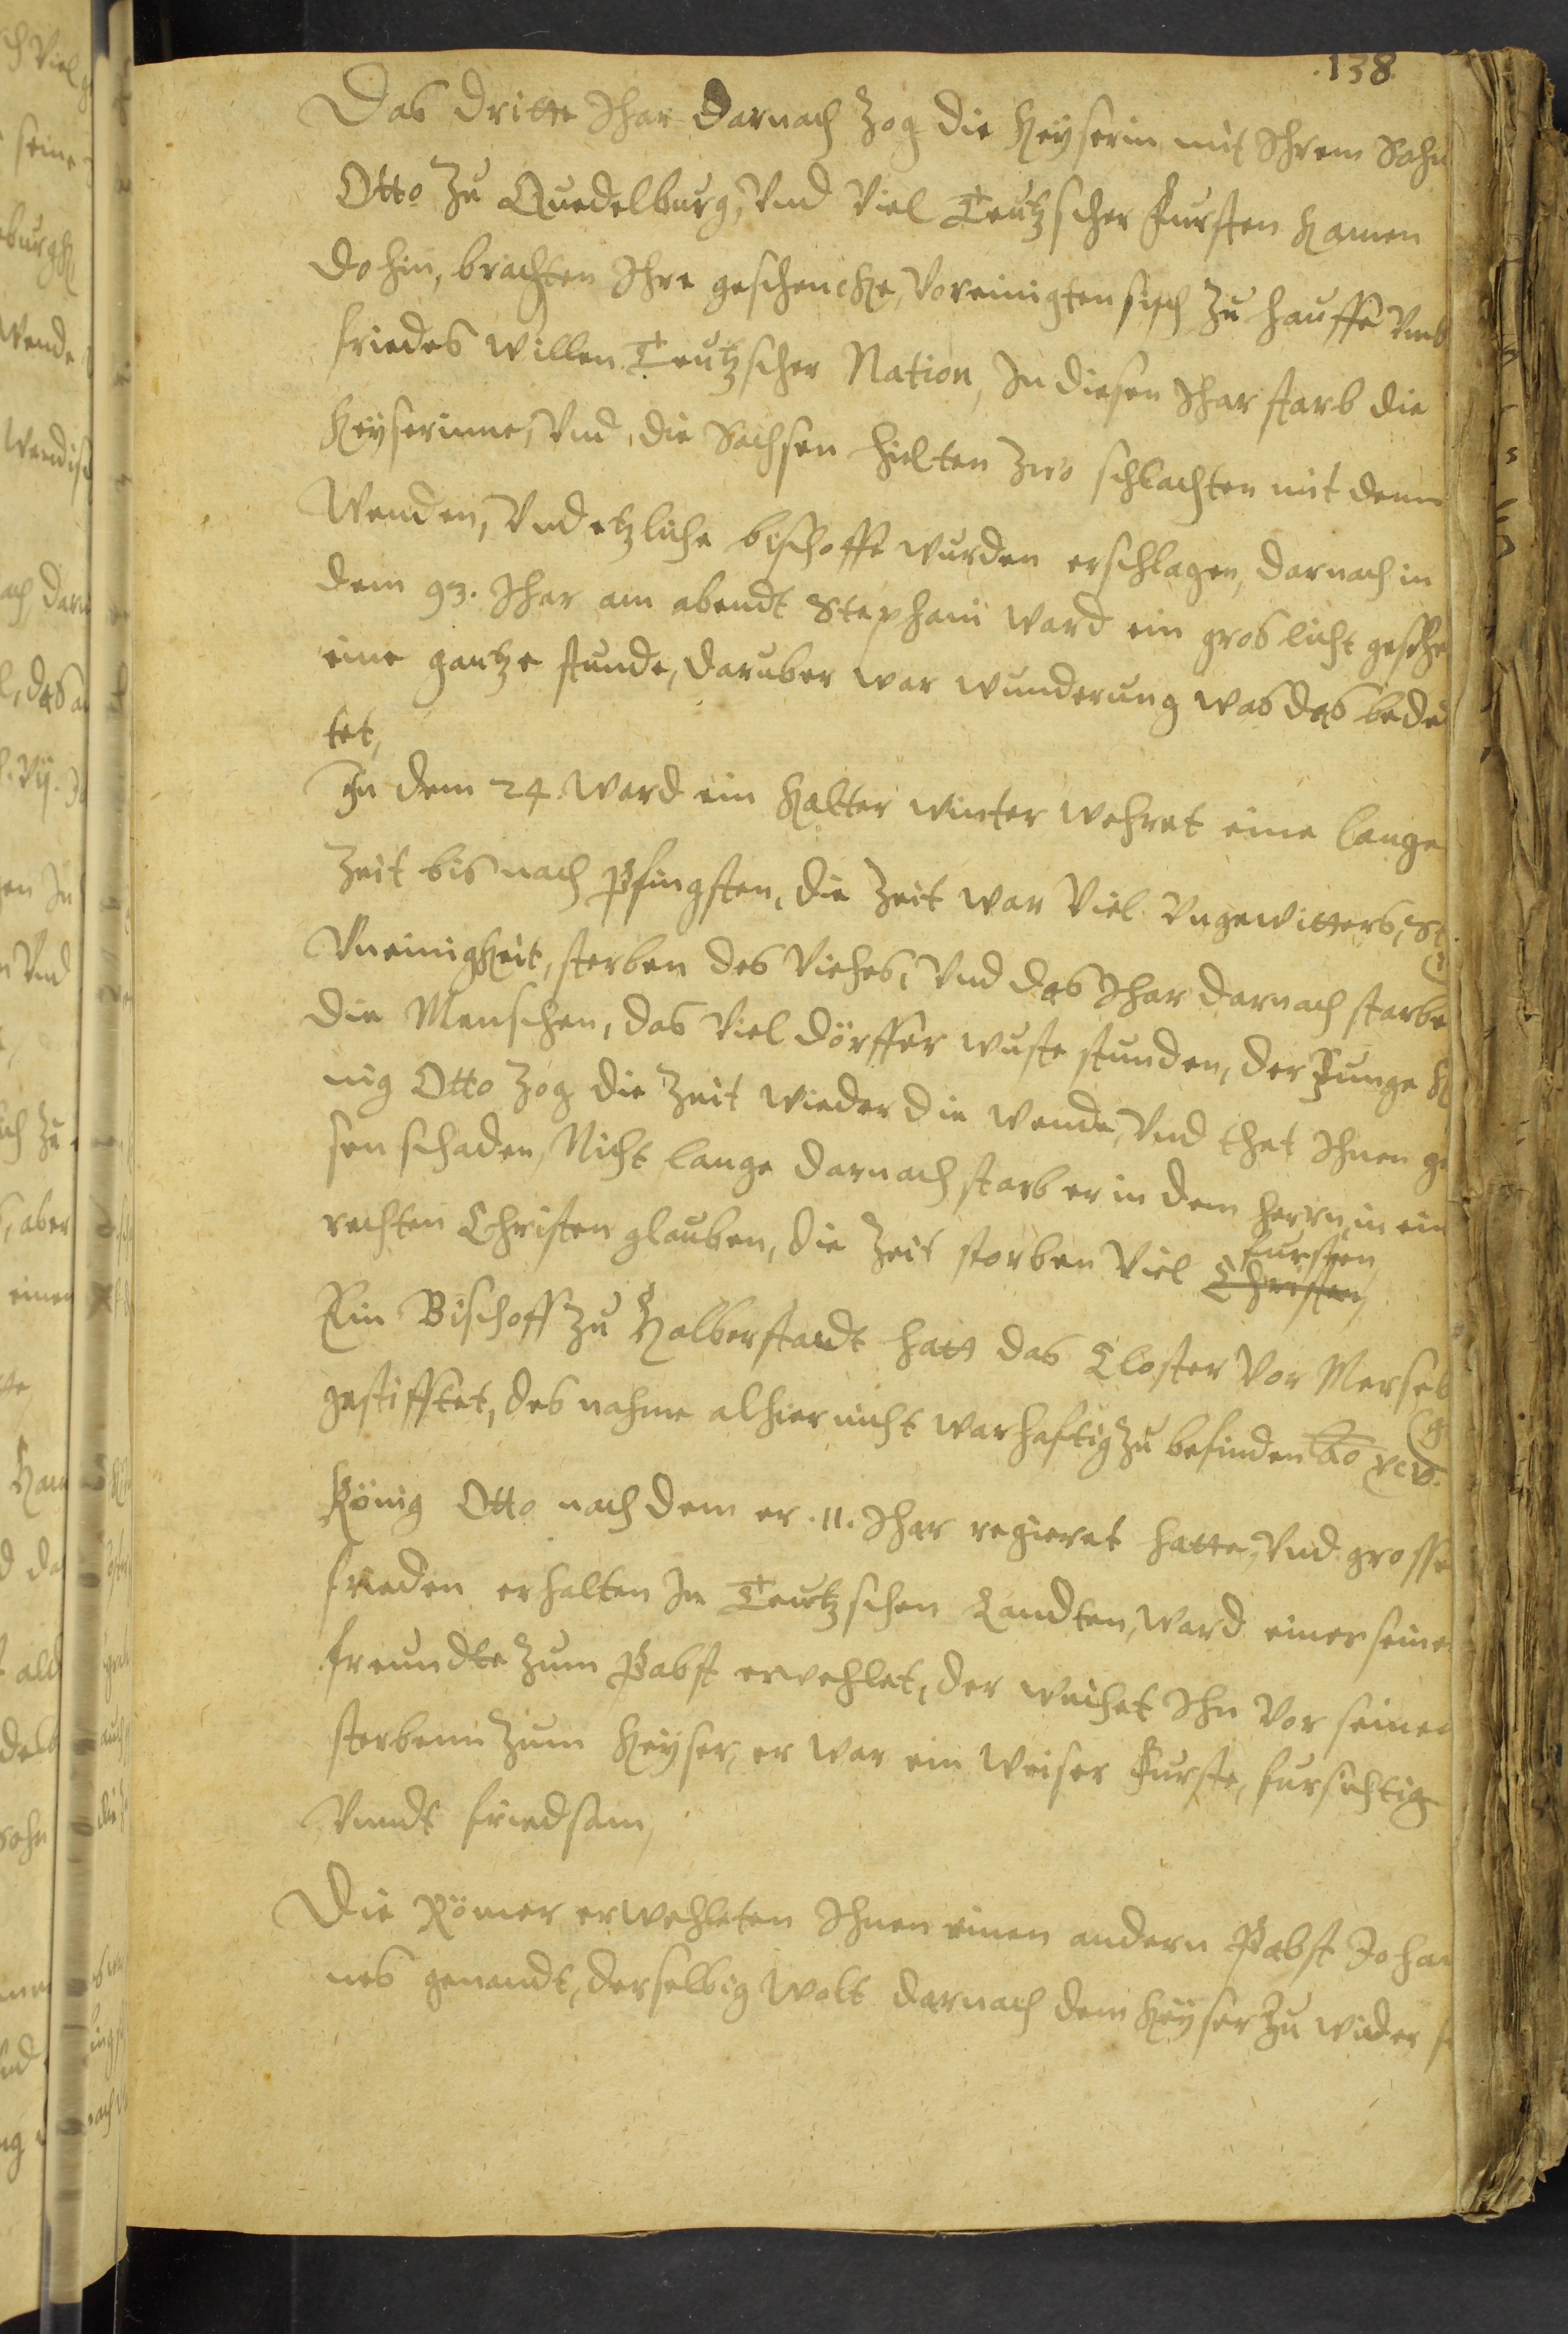 138
Das dritte Jhar darnach Zog die Keyserin mit Jhrem Sohn
Otto Zu Quedelburg, Vnd Viel Teutzscher Fursten Kamen
dohin, brachten Jhre geschencke, Voreinigten sich Zu hauffe Vmb
friedes willen Teutzscher Nation, Jn diesen Jhar starb die
Keyserinne, Vnd die Sachsen hielten zwo schlachten mit denn
Wenden, Vnd etzliche bischoffe wurden erschlagen, darnach in
dem 93. Jhar am abendt Stephani ward ein gros licht gesehe
eine gantze stunde, daruber war wunderung was das bedeu
tet,
Jn dem 24 ward ein Kalter winter wehret eine lange
Zeit bis nach Pfingsten, die Zeit war Viel Vngewitters, St
Vneinigkeit, sterben des Viehes, Vnd das Jhar darnach starbe
die Menschen, das Viel dörffer wuste stunden, der Junge K
nig Otto Zog die Zeit wieder die wende, Vnd thet Jhnen gr
sen schaden, Nicht lange darnach starb er in dem herrn, in ein
rechten Christen glauben, die Zeit storben Viel Christen, fursten
Ein Bischoff Zu Halberstandt hatt das Closter Vor Merseb
gestifftet, des nahme alhier nicht warhaftig zu befinden Ao xcv.
König Otto nach dem er .11. Jhar regieret hatte, Vnd grosse
frieden erhalten Jn Teutzschen Landten, ward einer seine
freundte Zum Pabst erwehlet, der weihet Jhn Vor seinen
sterbenn Zum Keyser, er war ein weiser Furste, fursichtig
Vnndt friedsam,
Die Römer erwehleten Jhnen einen andern Pabst Johan
nes genandt, derselbig wolt darnach dem Keyser Zu wider s